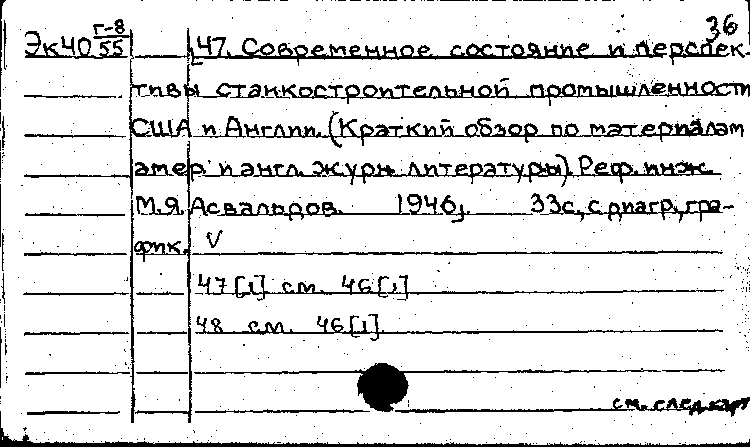 36
Эк40 Г-8/55 47. Современное состояние и перспек-
тивы станкостроительной промышленности
США и Англии. (Краткий обзор по материалам
амер. и англ. журн. литературы). Реф. инж.
М.Я. Асвальдов. 1946г. 33с., с диагр., гра-
фик. V
47[1] см. 46[1]
48 см. 46[1]
см. след. карт